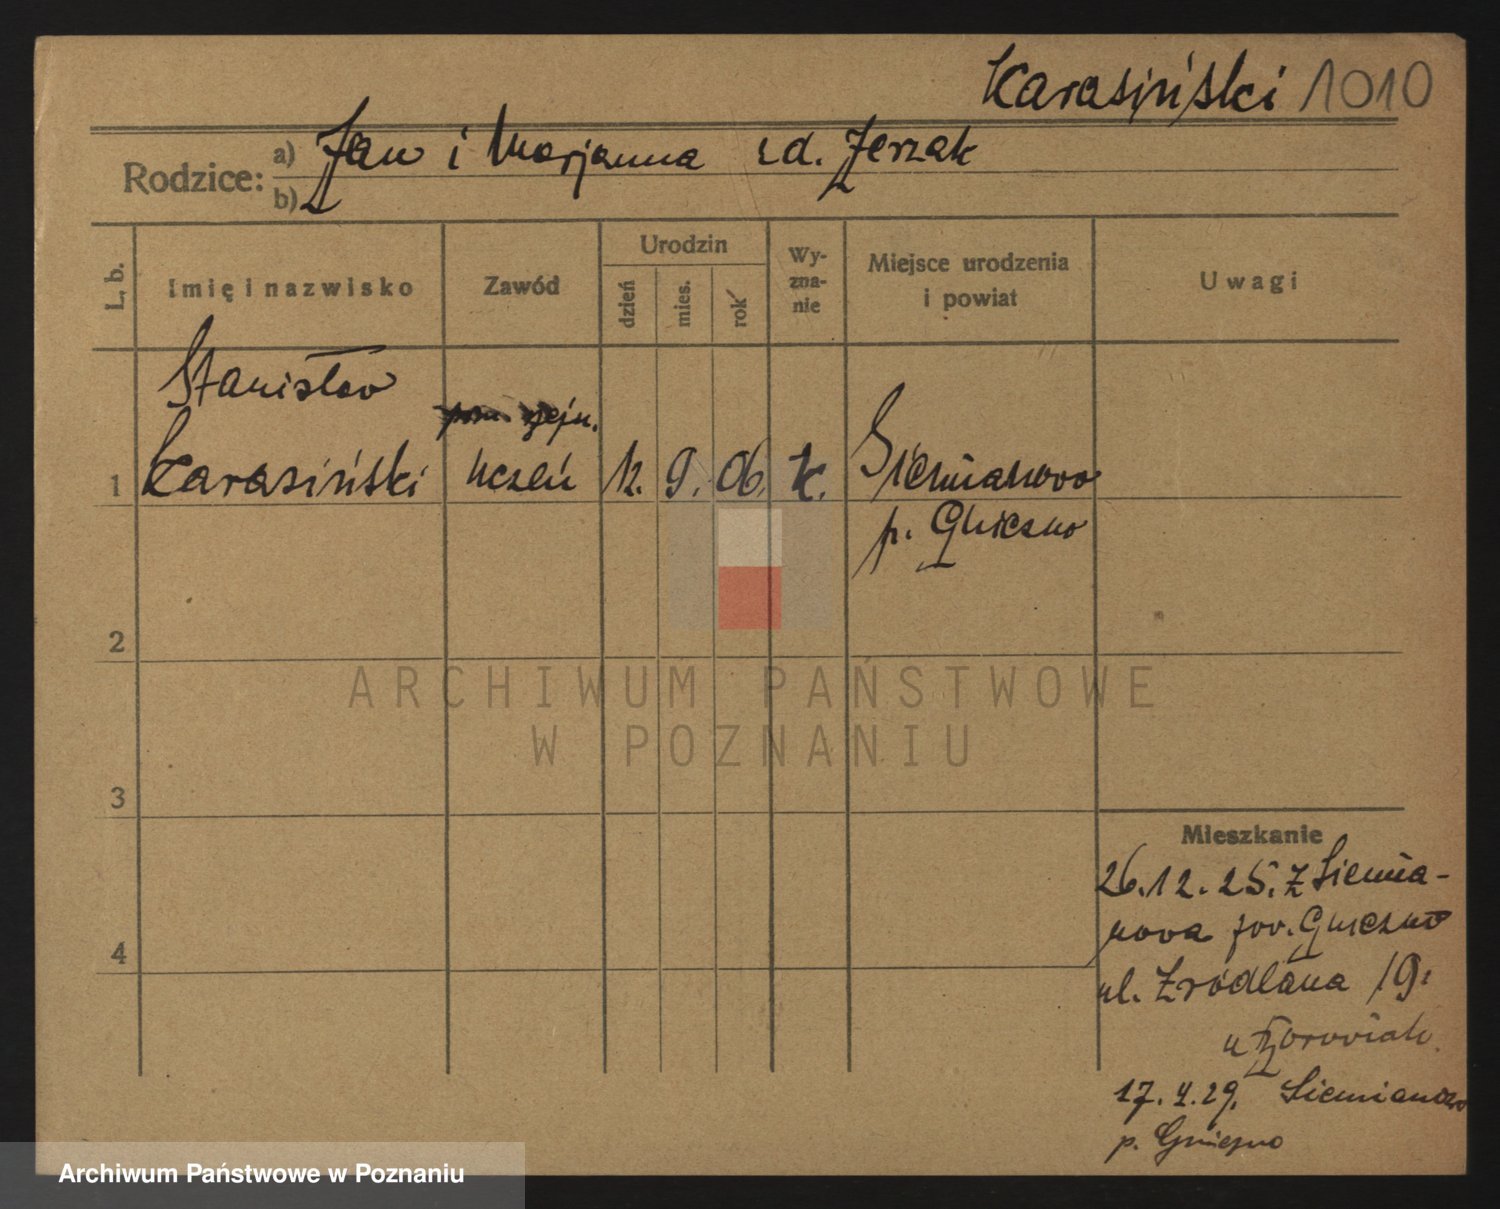 Karasiński 1010
Rodzice: a) Jan i Marjanna z d. Jerzak
b)
L. b. Imię i nazwisko Zawód Urodzin dzień mies. rok Wy-zna-nie Miejsce urodzenia i powiat Uwagi
Stanisław
1 Karasiński uczeń 12. 9. 06. k. Siemianowo
p. Gniezno
2
ARCHIWUM PAŃSTWOWE
W POZNANIU
3
Mieszkanie
26.12.25. z Siemia-
nowa pow. Gniezno
4
ul. Źródlana 19.
u
17.4.29. Siemianowo
p. Gniezno
Archiwum Państwowe w Poznaniu